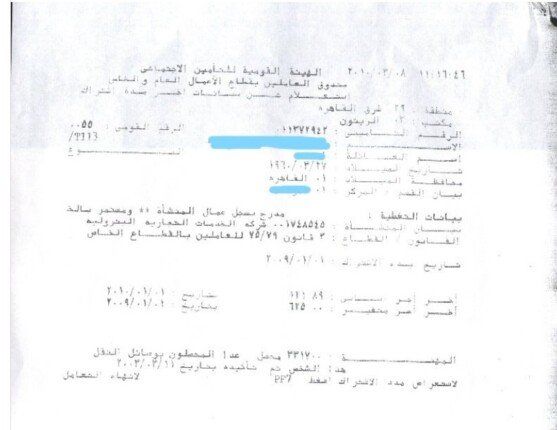 ١١:١٦:٤٦ ٢٠١٠/٠٣/٠٨ الهيئة القومية للتأمين الاجتماعى
صندوق العاملين بقطاع الاعمال العام و الخاص
استعلام عن بيانات اخر مدة اشتراك
منطقة : ٢٦ شرق القاهره
مكتب : ٠٢ الزيتون
الرقم التأمينى : ٠١١٣٧٢٩٤٢ الرقم القومى : ٠٠٥٥
الاسم :
اسم العائلة : النوع
تاريخ الميلاد : ١٩٦٠/٠٣/٢٧
محافظة الميلاد : ٠١ القاهره
بيان القسم / المركز : ٠١
بيانات التغطية : مدرج بسجل عمال المنشأة ** ومستمر بالخ
بيان المنشأة : ٠٠١٧٤٨٥٤٥ شركه الخدمات التجاريه البتروليه
القانون / القطاع : ٢ قانون ٧٥/٧٩ للعاملين بالقطاع الخاص
تاريخ بدء الاشتراك : ٢٠٠٩/٠١/٠١
اخر اجر اساسى : ٨٩ بتاريخ : ٢٠١٠/٠١/٠١
اخر اجر متغير : ٦٢٥٠٠ بتاريخ : ٢٠٠٩/٠١/٠١
المهنة : ٣٣١٧٠٠ محصل عدا المحصلون بوسائل النقل
هذا الشخص تم تأكيده بتاريخ ٢٠٠٣/٠٣/١١
لاستعراض مدد الاشتراك اضغط PF7 لانهاء التعامل